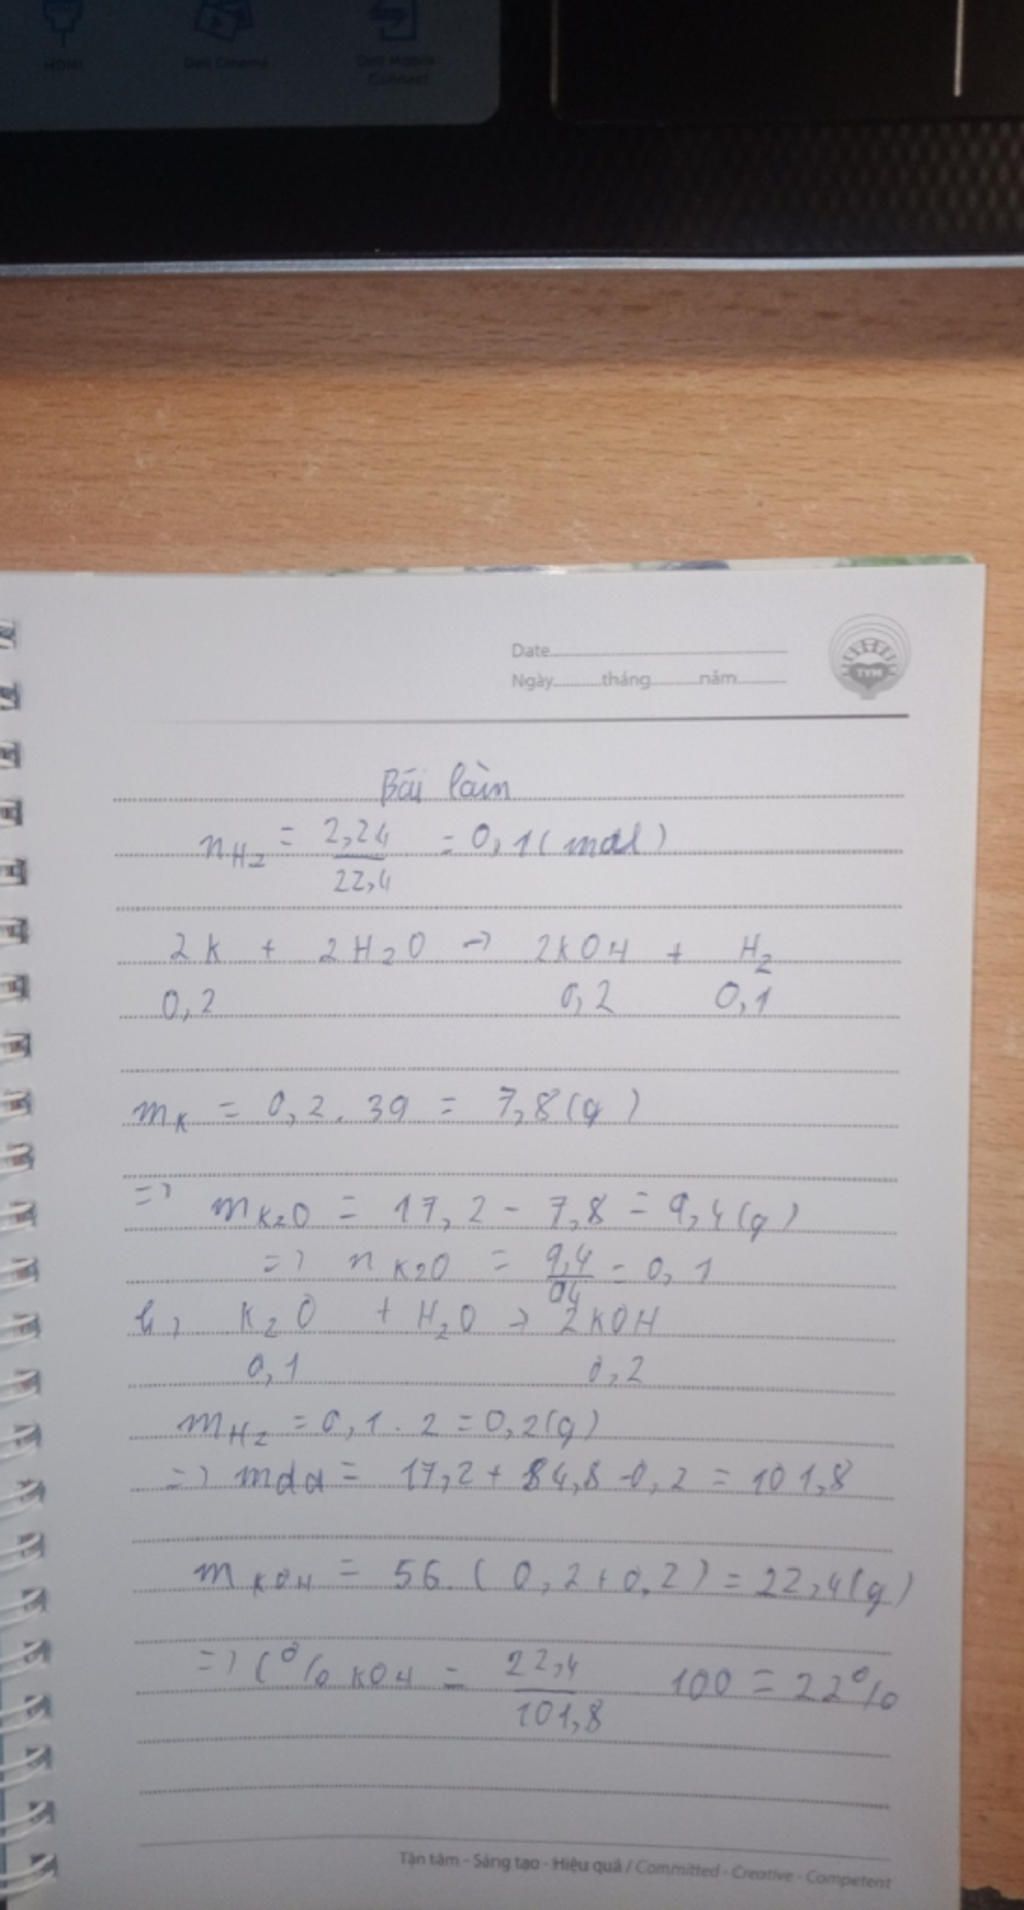 HDMI
Dell Cinema
Dell Mobile
Connect
Date
Ngày tháng năm
TYM
Bài làm
nH2 = 2,24/22,4 = 0,1 (mol)
2K + 2H2O → 2KOH + H2
0,2 0,2 0,1
mK = 0,2 . 39 = 7,8 (g)
=> mK2O = 17,2 - 7,8 = 9,4 (g)
=> nK2O = 9,4/94 = 0,1
b, K2O + H2O → 2KOH
0,1 0,2
mH2 = 0,1 . 2 = 0,2 (g)
=> mdd = 17,2 + 84,8 - 0,2 = 101,8
mKOH = 56. (0,2 + 0,2) = 22,4 (g)
=> C% KOH = 22,4/101,8 100 = 22%
Tận tâm - Sáng tạo - Hiệu quả / Committed - Creative - Competent